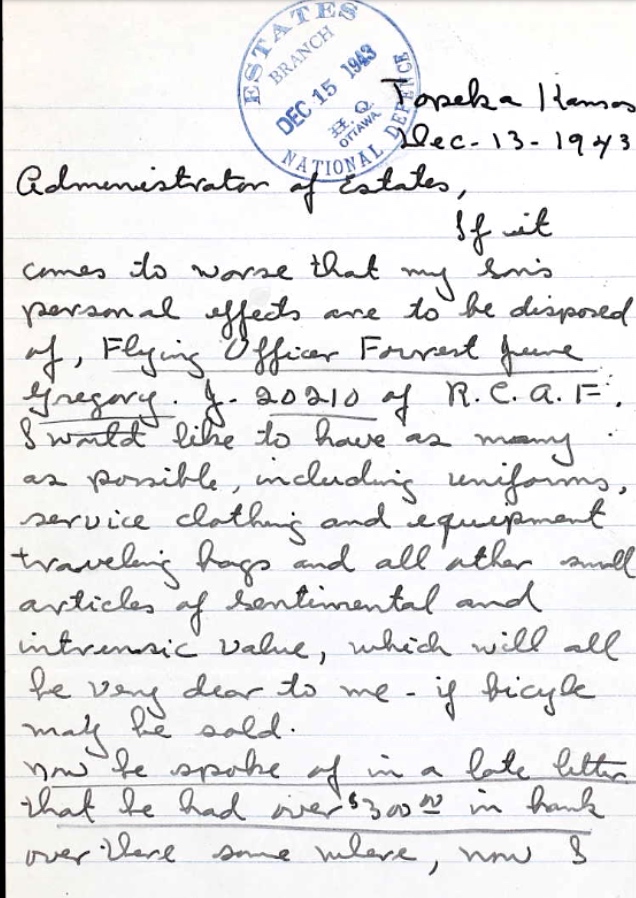 ESTATES
BRANCH
DEC 15 1943
H.Q.
OTTAWA
NATIONAL DEFENCE
Topeka Kansas
Dec-13-1943
Administrator of Estates,
If it
comes to worse that my son's
personal effects are to be disposed
of, Flying Officer Forrest June
Gregory. J-20210 of R.C.A.F.
I would like to have as many
as possible, including uniforms,
service clothing and equipment
traveling bags and all other small
articles of sentimental and
intrensic value, which will all
be very dear to me - if bicycle
may be sold.
now he spoke of in a late letter
that he had over $300 00 in bank
over there some where, now I